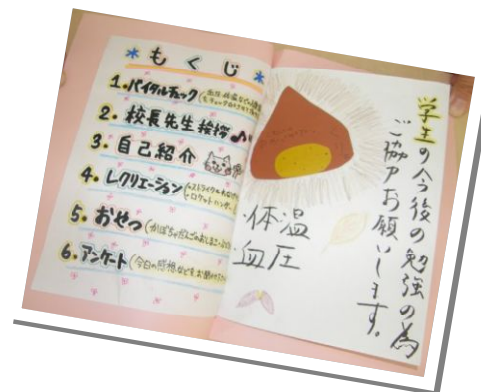 *もくじ*
1.バイタルチェック
2.校長先生挨拶♪
3.自己紹介
4.レクリエーション
5.おやつ
6.アンケート(今日の感想などを
学生の今後の勉強の為
ご協力お願いします。
・体温
・血圧